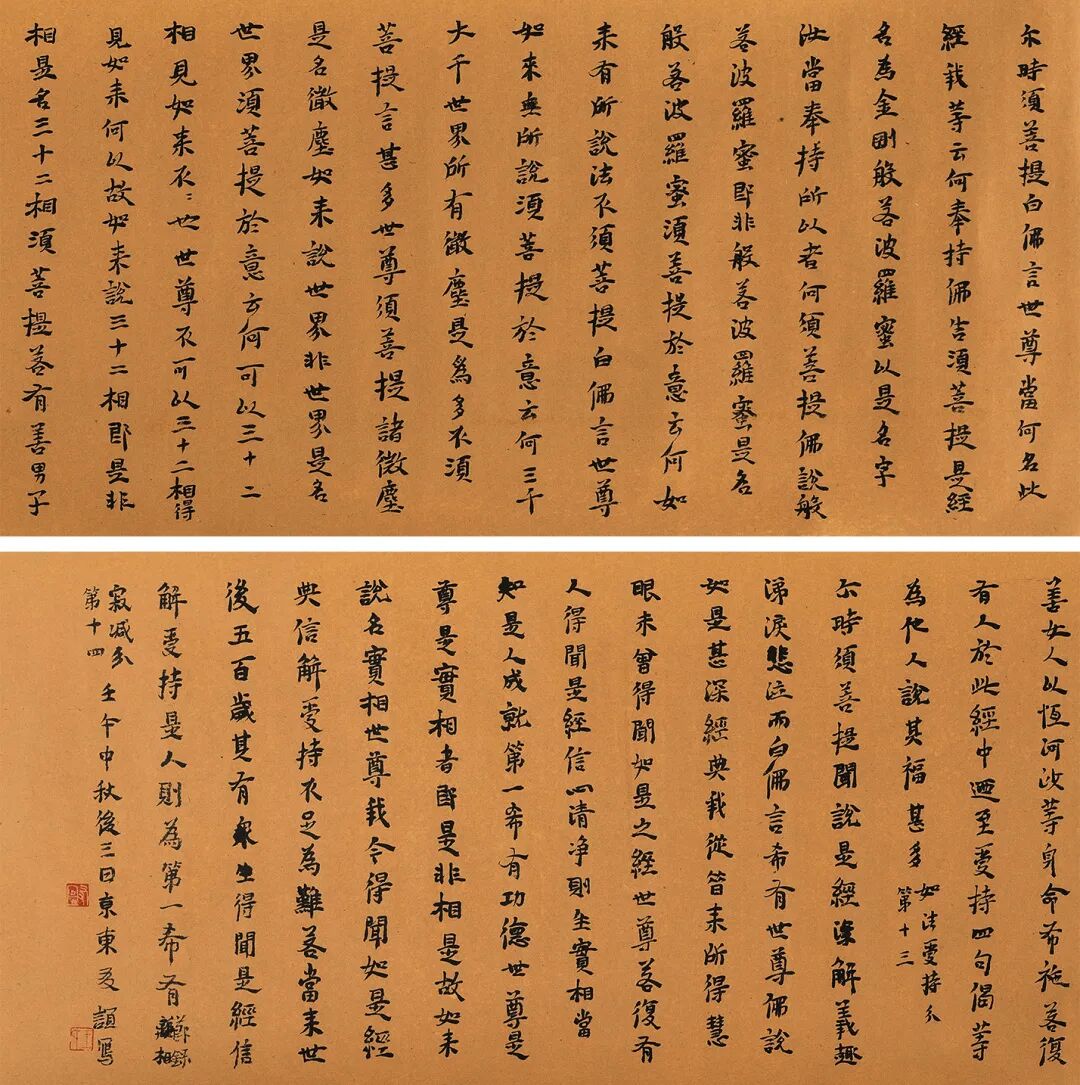 尔時須菩提白佛言世尊當何名此
經我等云何奉持佛告須菩提是經
名為金剛般若波羅蜜以是名字
汝當奉持所以者何須菩提佛說般
若波羅蜜即非般若波羅蜜是名
般若波羅蜜須菩提於意云何如
来有所說法不須菩提白佛言世尊
如來無所說須菩提於意云何三千
大千世界所有微塵是為多不須
菩提言甚多世尊須菩提諸微塵
是名微塵如来說世界非世界是名
世界須菩提於意云何可以三十二
相見如来不〻也世尊不可以三十二相得
見如来何以故如来說三十二相即是非
相是名三十二相須菩提若有善男子
善女人以恆河沙等身命布施若復
有人於此經中迺至受持四句偈等
為他人說其福甚多
如法受持分
第十三
尔時須菩提聞說是經深解義趣
涕淚悲泣而白佛言希有世尊佛說
如是甚深經典我從昔来所得慧
眼未曾得聞如是之經世尊若復有
人得聞是經信心清净則生實相當
知是人成就第一希有功德世尊是
尊是實相者即是非相是故如来
說名實相世尊我今得聞如是經
典信解受持不足為難若當来世
後五百歲其有衆生得聞是經信
解受持是人則為第一希有
節錄
離相
寂滅分
第十四
壬午中秋後三日京東友誼寫